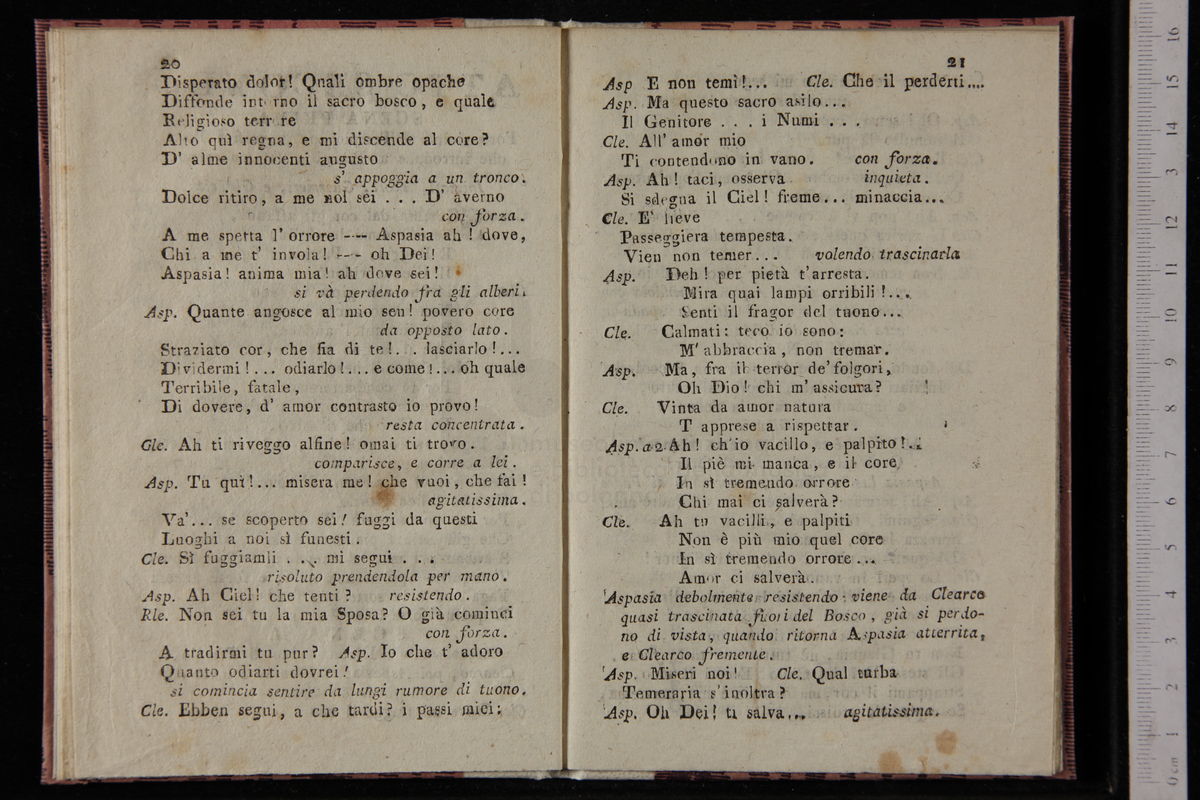 20
Disperato dolor! Quali ombre opache
Diffonde intorno il sacro bosco, e quale
Religioso terrore
Alto quì regna, e mi discende al core?
D' alme innocenti augusto
s' appoggia a un tronco.
Dolce ritiro, a me nol sei . . . D' averno
con forza.
A me spetta l' orrore ---- Aspasia ah! dove,
Chi a me t' invola! --- oh Dei!
Aspasia! anima mia! ah dove sei!
si và perdendo fra gli alberi.
Asp. Quante angosce al mio sen! povero core
da opposto lato.
Straziato cor, che fia di te!. . . lasciarlo!...
Dividermi!... odiarlo!... e come!... oh quale
Terribile, fatale,
Di dovere, d' amor contrasto io provo!
resta concentrata.
Cle. Ah ti riveggo alfine! omai ti trovo.
comparisce, e corre a lei.
Asp. Tu quì!... misera me! che vuoi, che fai!
agitatissima.
Va'... se scoperto sei! fuggi da questi
Luoghi a noi sì funesti.
Cle. Sì fuggiamli . . . mi segui . . .
risoluto prendendola per mano.
Asp. Ah Ciel! che tenti? resistendo.
Rle. Non sei tu la mia Sposa? O già cominci
con forza.
A tradirmi tu pur? Asp. Io che t' adoro
Quanto odiarti dovrei!
si comincia sentire da lungi rumore di tuono.
Cle. Ebben segui, a che tardi? i passi miei:
21
Asp E non temi!... Cle. Che il perderti....
Asp. Ma questo sacro asilo...
Il Genitore . . . i Numi . . .
Cle. All' amor mio
Ti contendono in vano. con forza.
Asp. Ah! taci, osserva inquieta.
Si sdegna il Ciel! freme... minaccia...
Cle. E' lieve
Passeggiera tempesta.
Vien non temer... volendo trascinarla
Asp. Deh! per pietà t'arresta.
Mira quai lampi orribili!...
Senti il fragor del tuono...
Cle. Calmati: teco io sono:
M' abbraccia, non tremar.
Asp. Ma, fra il terror de' folgori,
Oh Dio! chi m' assicura?
Cle. Vinta da amor natura
T apprese a rispettar.
Asp. a 2 Ah! ch'io vacillo, e palpito!..
Il piè mi manca, e il core
In sì tremendo orrore
Chi mai ci salverà?
Cle. Ah tu vacilli, e palpiti
Non è più mio quel core
In sì tremendo orrore...
Amor ci salverà.
Aspasia debolmente resistendo: viene da Clearco
quasi trascinata fuori del Bosco, già si perdo-
no di vista, quando ritorna Aspasia atterrita,
e Clearco fremente.
Asp. Miseri noi! Cle. Qual turba
Temeraria s'inoltra?
Asp. Oh Dei! ti salva... agitatissima.